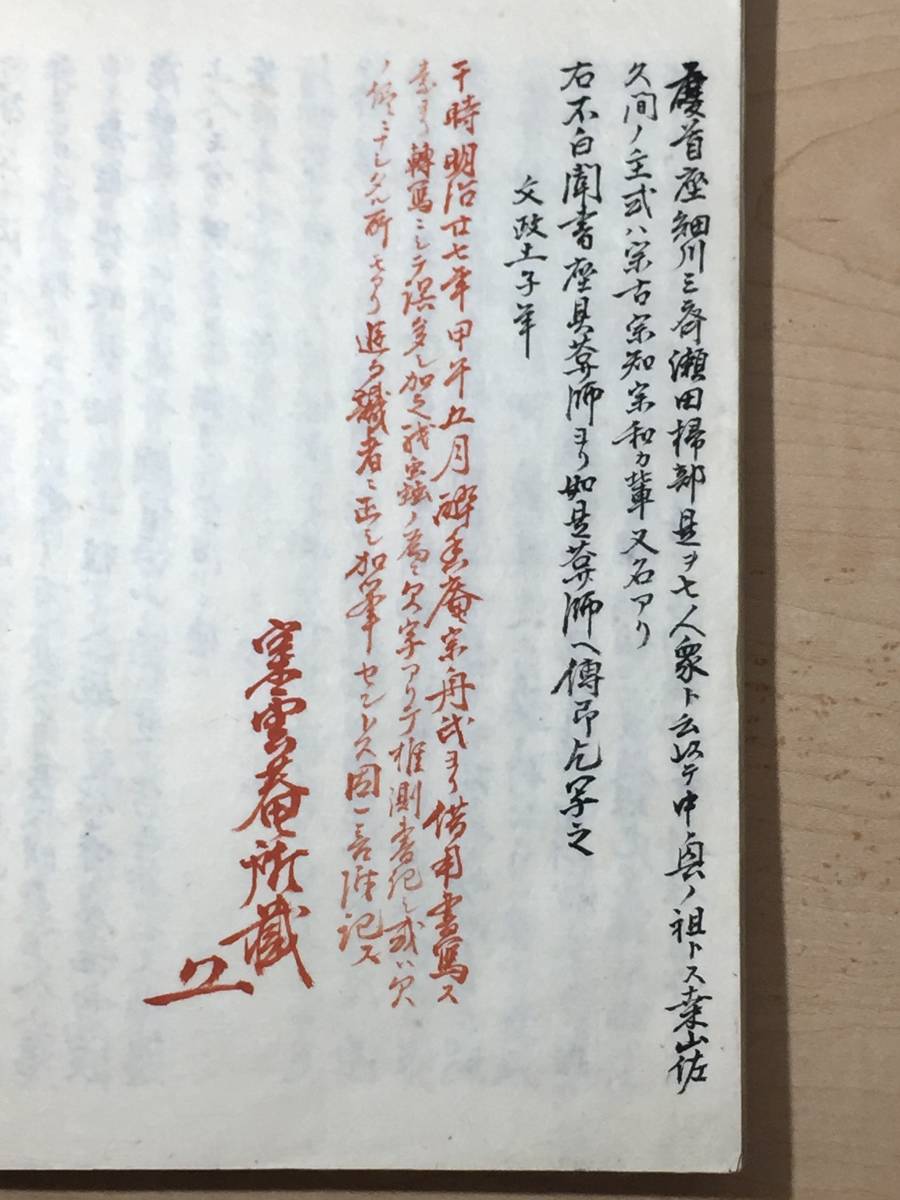 慶首座細川三斎瀬田掃部是ヲ七人衆ト云以テ中興ノ祖トス桑山佐
久間ノ主或ハ宗古宗知宗和カ輩又名アリ
右不白聞書座具菴師ヨリ如是菴師ヘ傳 写之
文政 子年
干時明治廿七年甲午五月酔香庵宗舟氏ヨリ借用書写ス
素ヨリ轉写ニシテ誤多シ加之 虫蝕ノ為ニ欠字アリテ推測書記シ或ハ欠
ノ侭ニナシタル所モアリ追而識者ニ正シ加筆セントス因一言 記ス
寒雲菴所蔵